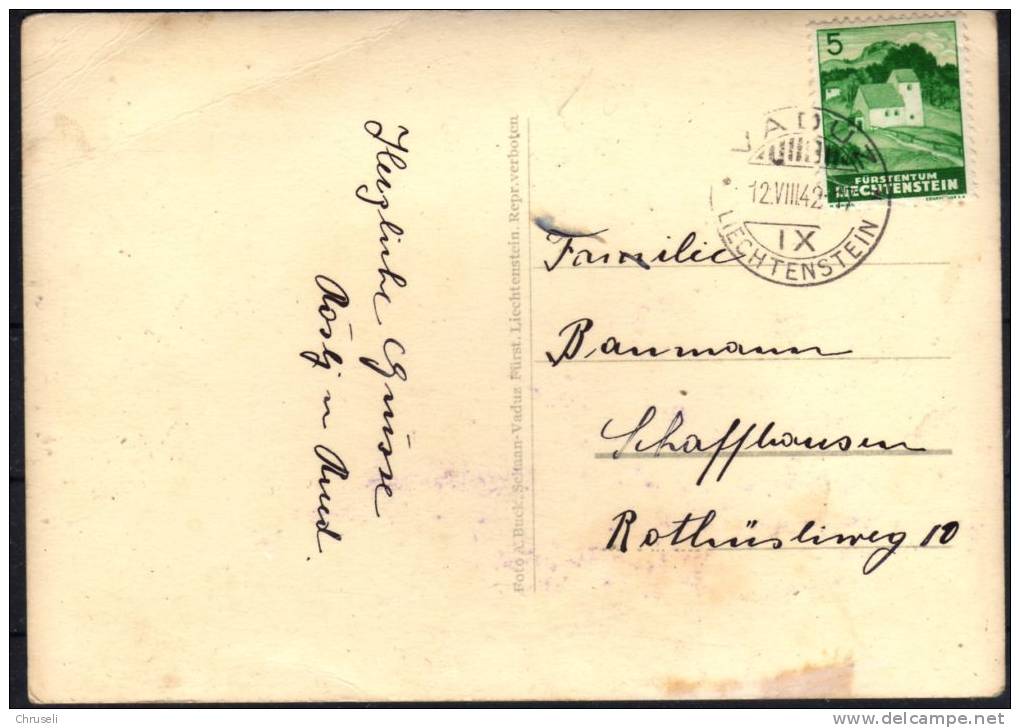 Herzliche Grüsse
Rösly u Rued.
Foto A. Buck. Schaan-Vaduz Fürst. Liechtenstein. Repr. verboten
5
FÜRSTENTUM
LIECHTENSTEIN
VADUZ
12.VIII.42
IX
LIECHTENSTEIN
Familie
Baumann
Schaffhausen
Rothüsliweg 10
Chruseli
delcampe.net